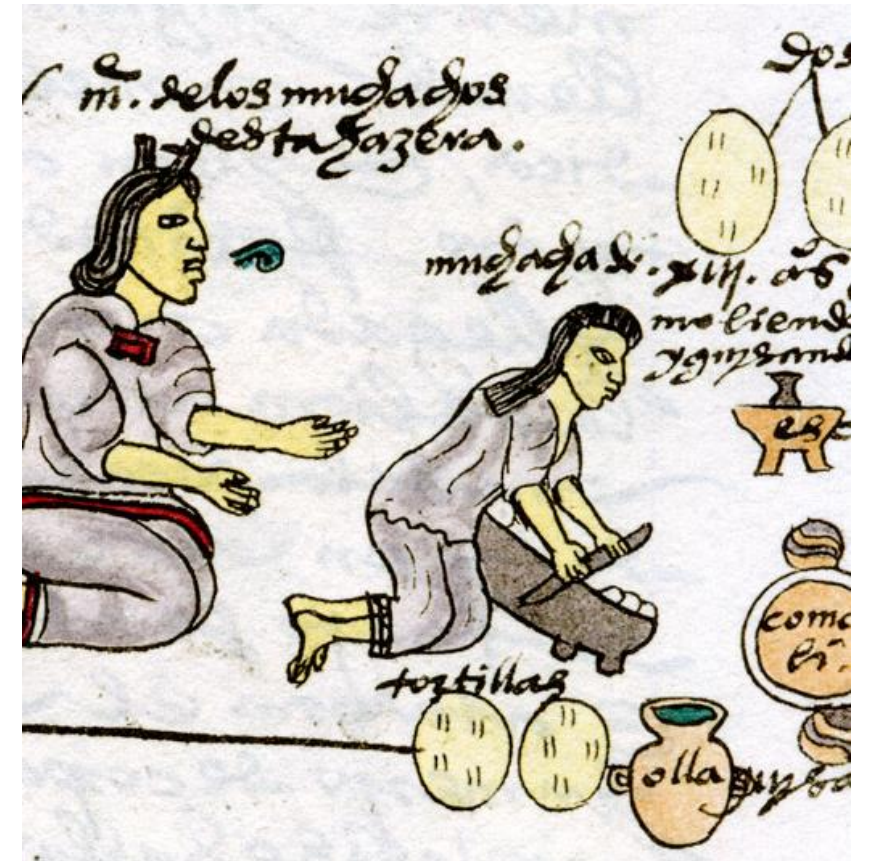 mᵉ. delos muchachos
desta hazera.
dos
muchacha de. xiij. aˢ
moliend
yguisand
es
como
li.
tortillas
olla